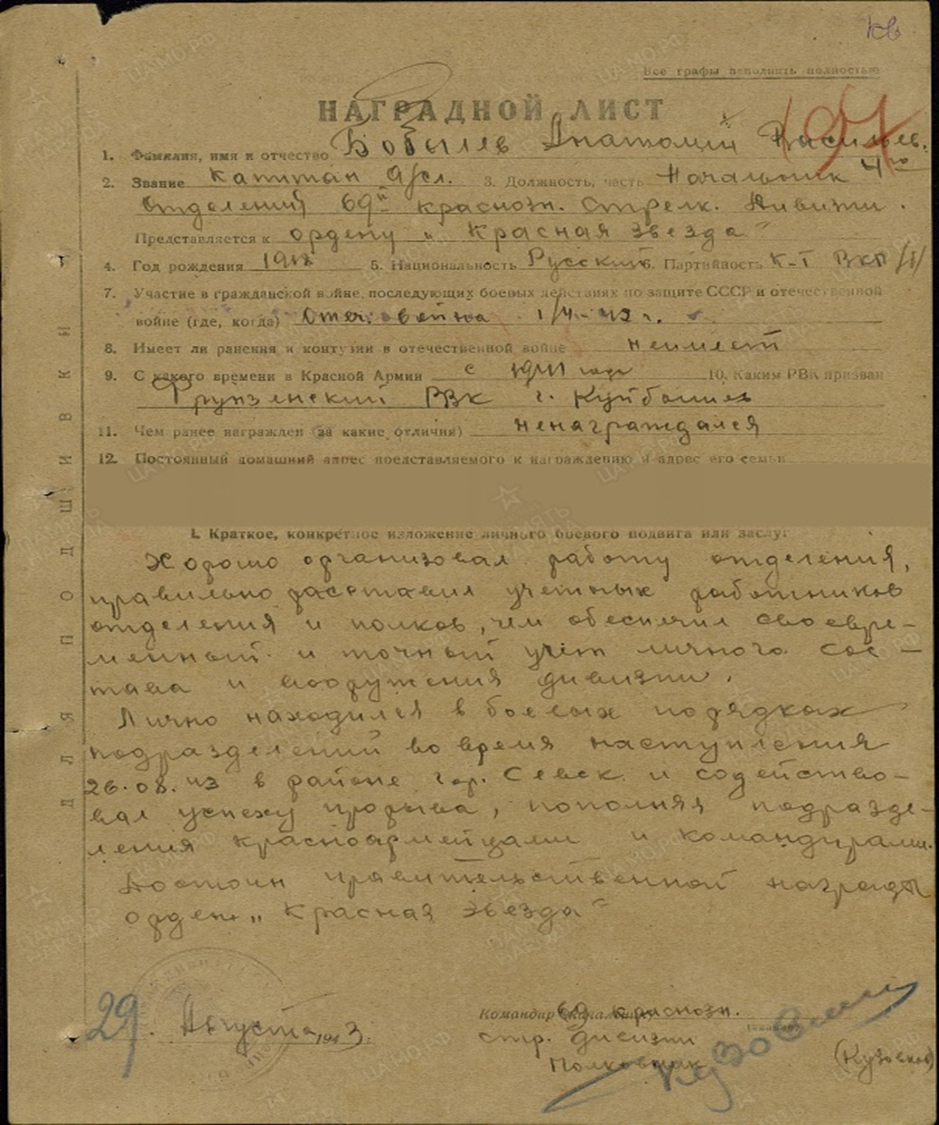 Все графы исполнять полностью
НАГРАДНОЙ ЛИСТ
1. Фамилия, имя и отчество Бобылев Анатолий Васильев.
2. Звание Капитан А/сл. 3. Должность, часть Начальник 4го
Отделения 69й краснозн. Стрелк. Дивизии.
Представляется к ордену „Красная Звезда"
4. Год рождения 1918 5. Национальность Русский 6. Партийность К-т ВКП/б/
7. Участие в гражданской войне, последующих боевых действиях по защите СССР и отечественной
войне (где, когда) Отеч. война 1/4-43 г.
8. Имеет ли ранения и контузии в отечественной войне неимеет
9. С какого времени в Красной Армии с 1941 года 10. Каким РВК призван
Фрунзенский РВК г. Куйбышев
11. Чем ранее награжден (за какие отличия) ненаграждался
12. Постоянный домашний адрес представляемого к награждению и адрес его семьи
I. Краткое, конкретное изложение личного боевого подвига или заслуг
Хорошо организовал работу отделения,
правильно расставил учетных работников
отделения и полков, чем обеспечил своевре-
менный и точный учет личного сос-
тава и вооружения дивизии.
Лично находился в боевых порядках
подразделений во время наступления
26.08.43 в районе гор. Севск и содейство-
вал успеху прорыва, пополняя подразде-
ления красноармейцами и командирами.
Достоин правительственной награды
орден „Красная Звезда"
29 Августа 1943 г.
Командир 69 краснозн.
стр. дивизии
Полковник (Кузовков)
ДЛЯ ПОДШИВКИ